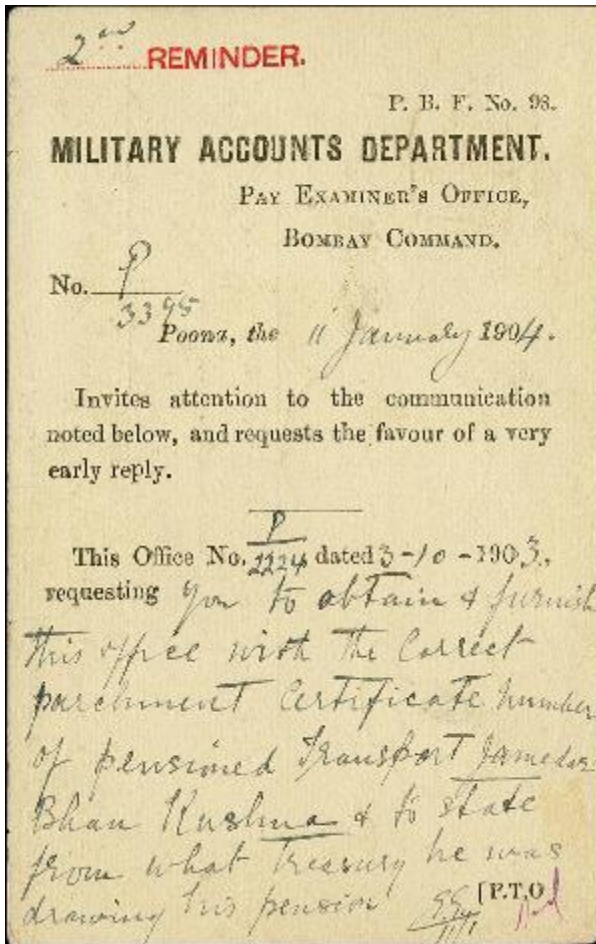 2nd REMINDER.
P. B. F. No. 98.
MILITARY ACCOUNTS DEPARTMENT.
PAY EXAMINER'S OFFICE,
BOMBAY COMMAND.
No. P
3395
Poona, the 11 January 1904.
Invites attention to the communication
noted below, and requests the favour of a very
early reply.
P
This Office No. 2224 dated 3-10-1903,
requesting you to obtain & furnish
this office with the correct
parchment certificate number
of pensioned Transport Jamedar
Bhau Kushna & to state
from what treasury he was
drawing his pension
[P.T.O